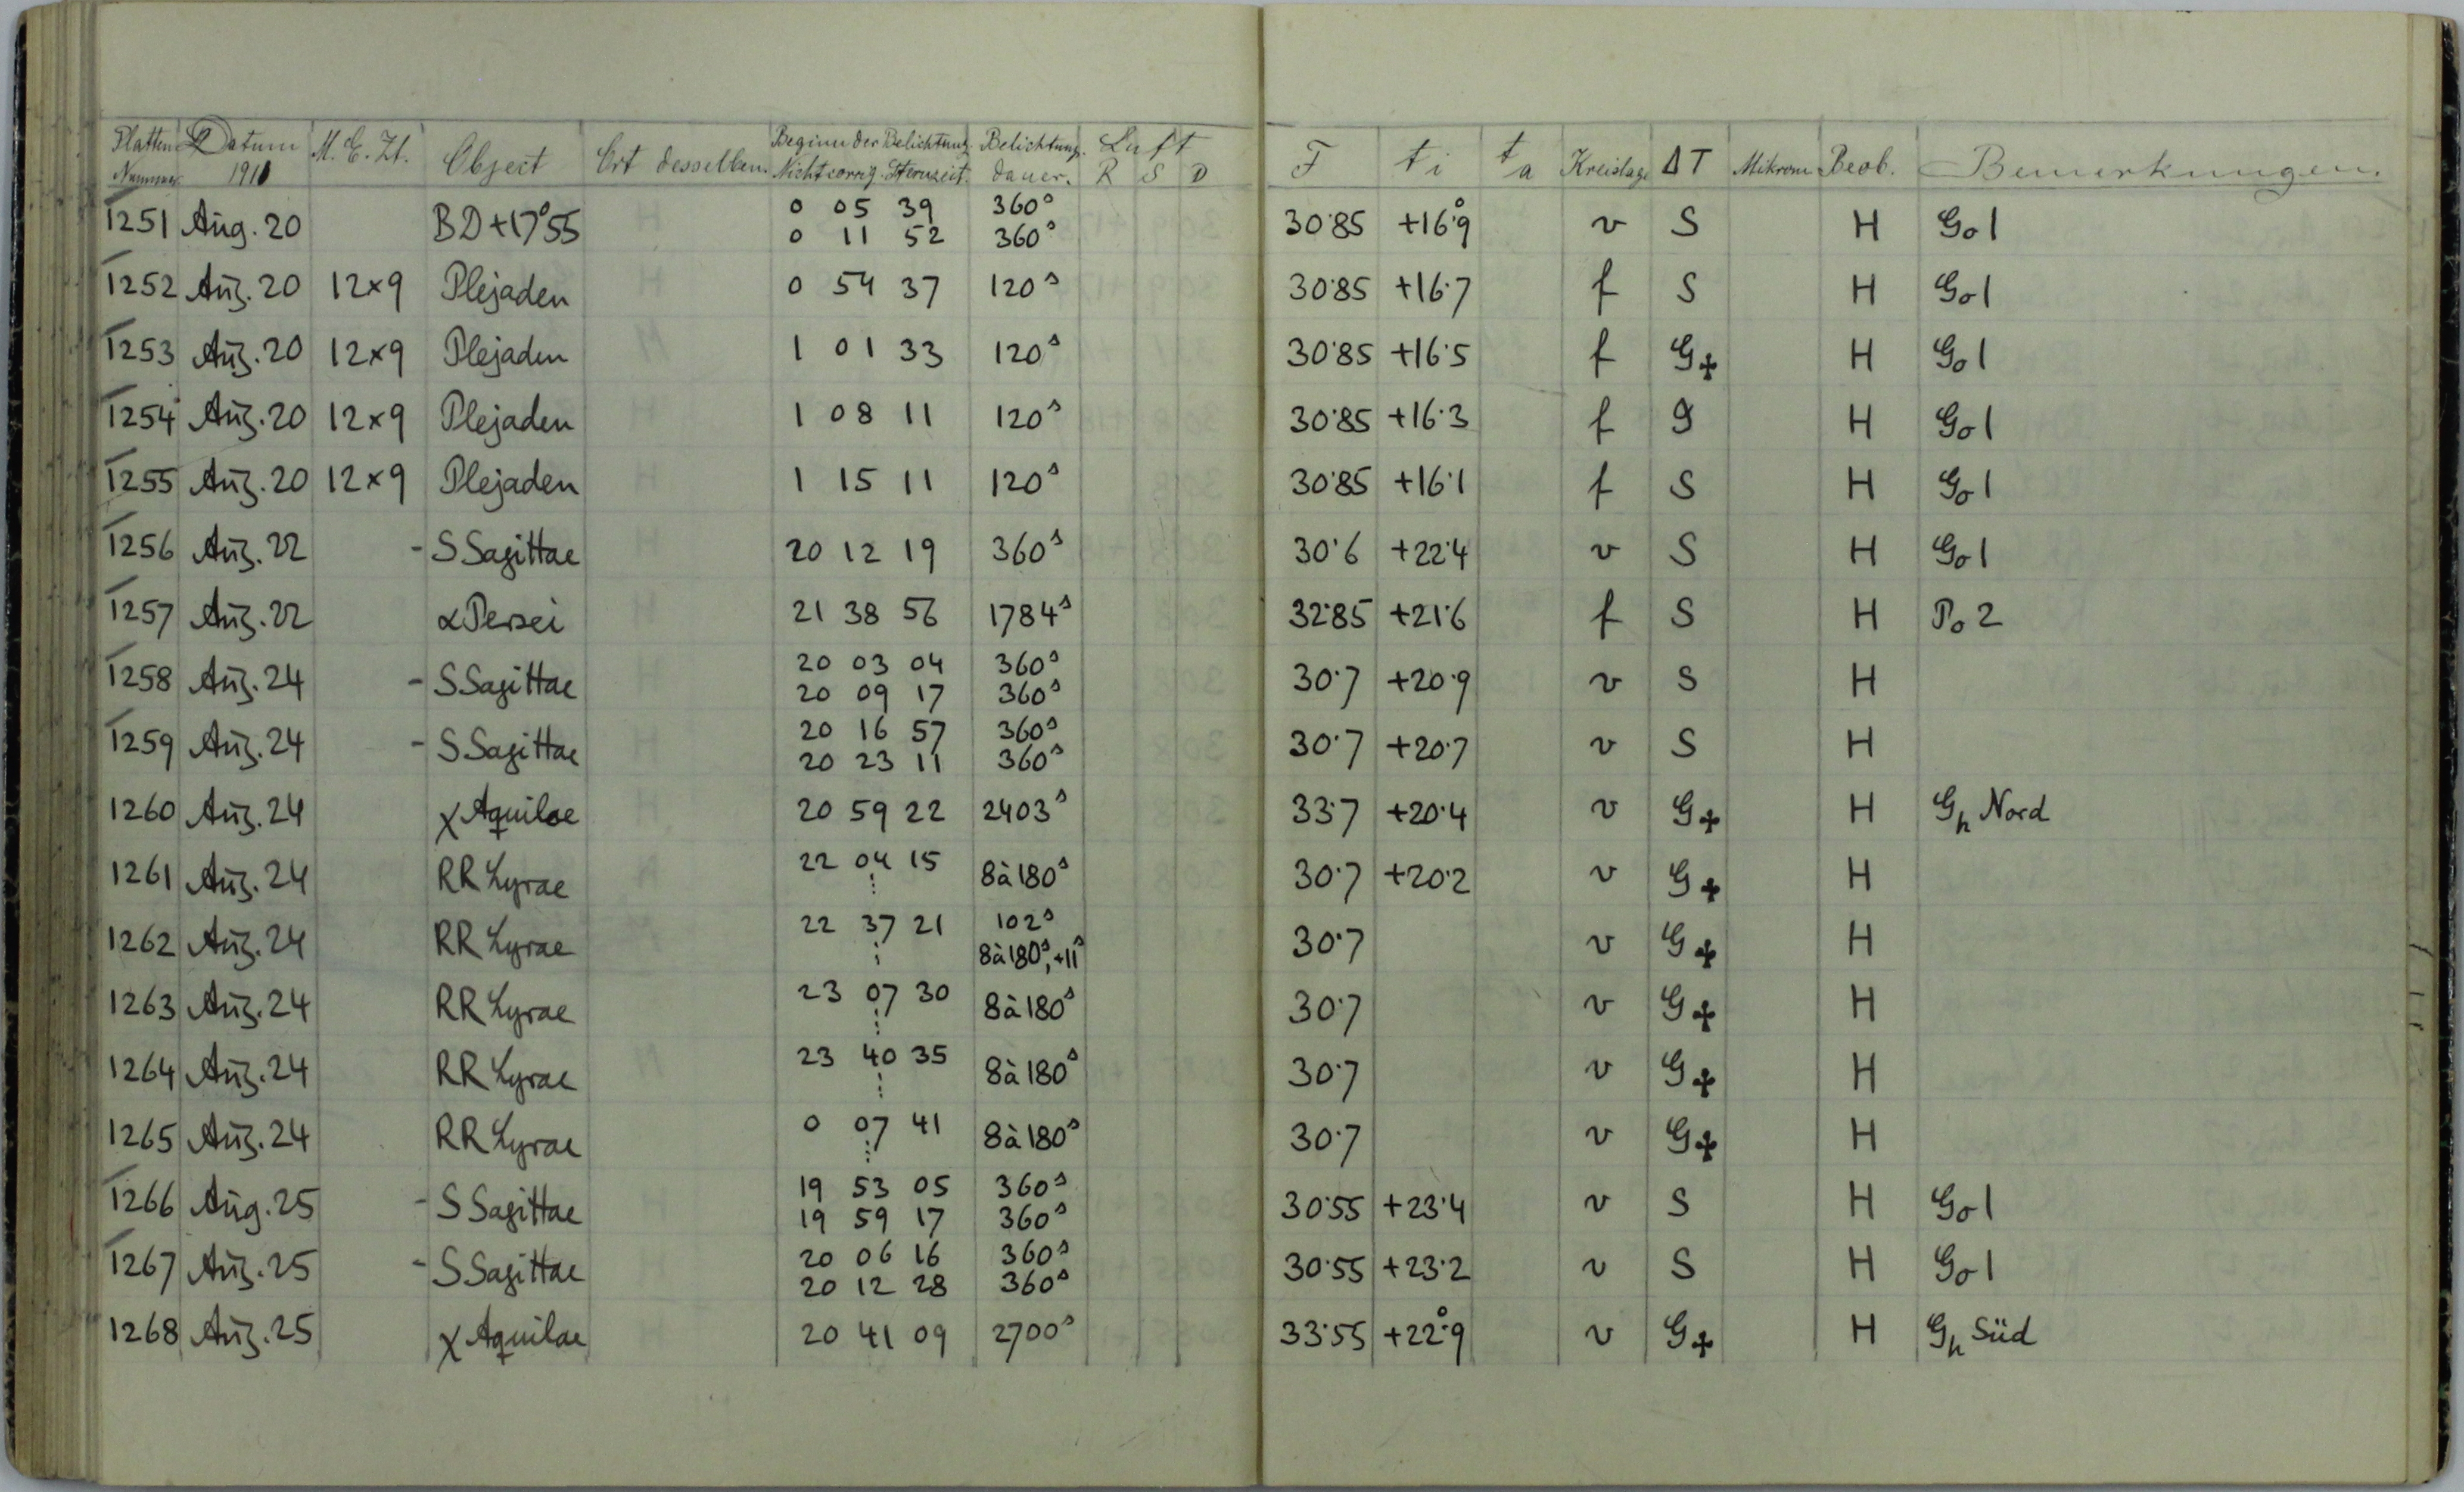 Platten Nummer Datum 1911 M. E. Zt. Object Ort desselben. Beginn der Belichtung. Nicht corrig. Sternzeit. Belichtung. dauer. Luft R S D F ti ta Kreislage ΔT Mikrom Beob. Bemerkungen.
1251 Aug. 20 BD+17°55 0 05 39 360s 30·85 +16°9 v S H Go1
0 11 52 360s
1252 Aug. 20 12×9 Plejaden 0 54 37 120s 30·85 +16·7 f S H Go1
1253 Aug. 20 12×9 Plejaden 1 01 33 120s 30·85 +16·5 f G+ H Go1
1254 Aug. 20 12×9 Plejaden 1 08 11 120s 30·85 +16·3 f g H Go1
1255 Aug. 20 12×9 Plejaden 1 15 11 120s 30·85 +16·1 f S H Go1
1256 Aug. 22 - S Sagittae 20 12 19 360s 30·6 +22·4 v S H Go1
1257 Aug. 22 α Persei 21 38 56 1784s 32·85 +21·6 f S H Po2
1258 Aug. 24 - S Sagittae 20 03 04 360s 30·7 +20·9 v S H
20 09 17 360s
1259 Aug. 24 - S Sagittae 20 16 57 360s 30·7 +20·7 v S H
20 23 11 360s
1260 Aug. 24 χ Aquilae 20 59 22 2403s 33·7 +20·4 v G+ H Gh Nord
1261 Aug. 24 RR Lyrae 22 04 15 8à180s 30·7 +20·2 v G+ H
1262 Aug. 24 RR Lyrae 22 37 21 102s 30·7 v G+ H
8à180s,+11s
1263 Aug. 24 RR Lyrae 23 07 30 8à180s 30·7 v G+ H
1264 Aug. 24 RR Lyrae 23 40 35 8à180s 30·7 v G+ H
1265 Aug. 24 RR Lyrae 0 07 41 8à180s 30·7 v G+ H
1266 Aug. 25 - S Sagittae 19 53 05 360s 30·55 +23·4 v S H Go1
19 59 17 360s
1267 Aug. 25 - S Sagittae 20 06 16 360s 30·55 +23·2 v S H Go1
20 12 28 360s
1268 Aug. 25 χ Aquilae 20 41 09 2700s 33·55 +22°9 v G+ H Gh Süd